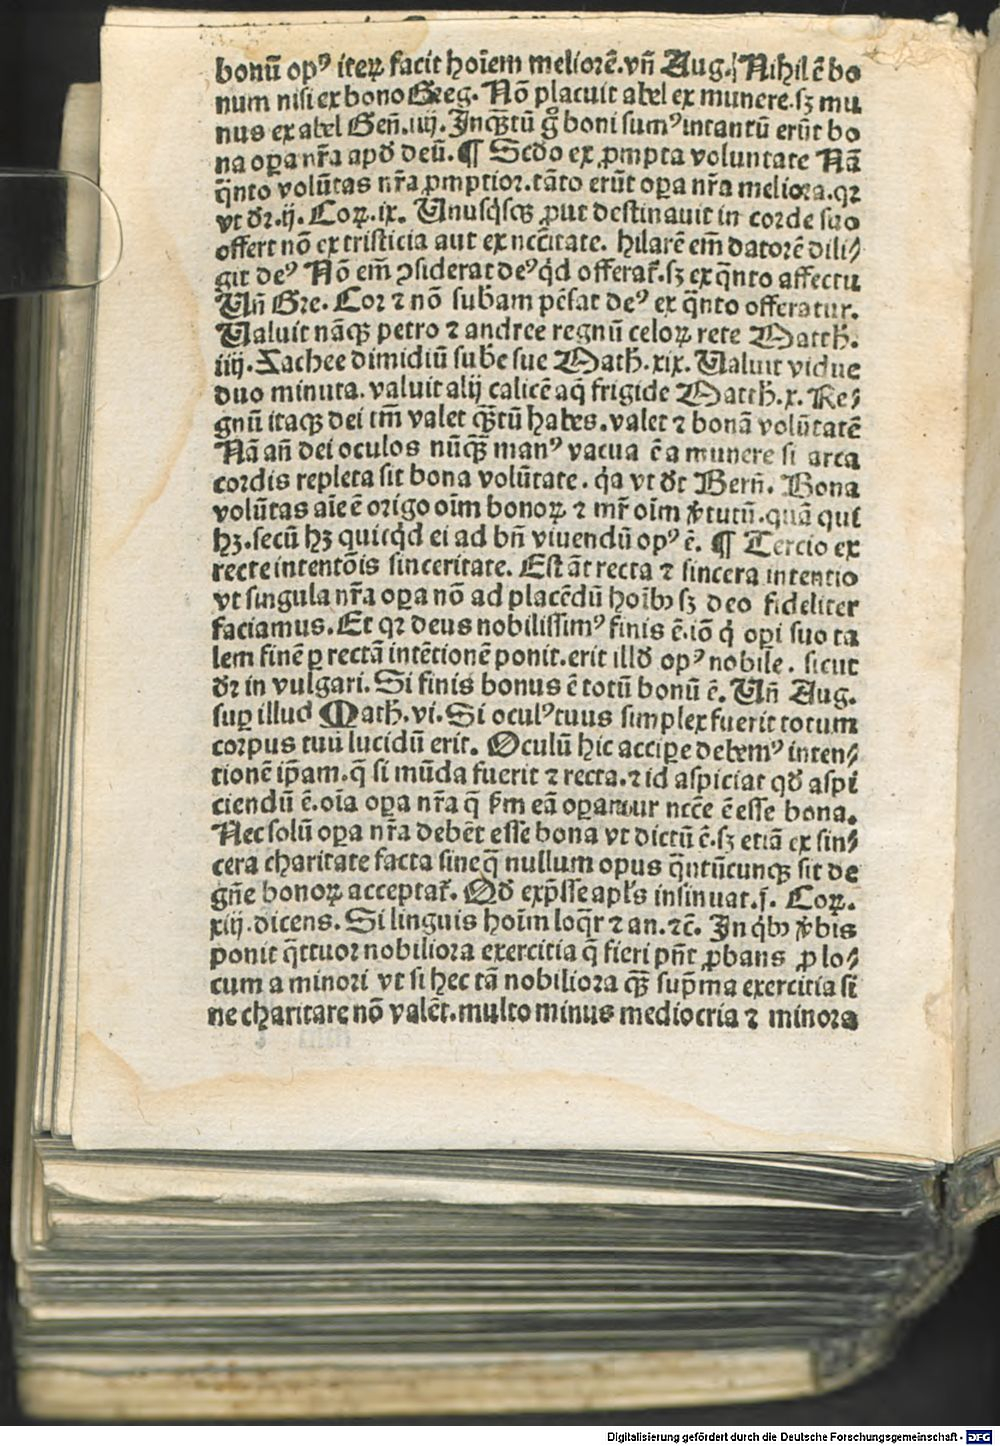 bonū opꝰ iteꝝ facit hoīem meliorē. vñ Aug. Nihil ē bo
num nisi ex bono Greg. Nō placuit abel ex munere. sꝫ mu
nus ex abel Geñ. iiij. Inqꝫtū g̊ boni sumꝰ intantū erūt bo
na oꝑa nr̄a apđ deū. ¶ Scđo ex ꝓmpta voluntate Nā
q̄nto volūtas nr̄a ꝓmptior. tāto erūt oꝑa nr̄a meliora. qꝛ
vt dꝛ. ij. Coꝝ. ix. Unusq̇sqꝫ ꝓut destinauit in corde suo
offert nō ex tristicia aut ex nc̄citate. hilarē em̄ datorē dili⸗
git deꝰ Nō em̄ ↄsiderat deꝰ q̇d offerat̄. sꝫ ex q̄nto affectu
Uñ Gre. Cor ⁊ nō sub̄am pēsat deꝰ ex q̄nto offeratur.
Ualuit nāqꝫ petro ⁊ andree regnū celoꝝ rete Matth̄.
iiij. Zachee dimidiū sub̄e sue Math̄. xix. Ualuit vidue
duo minuta. valuit alij calicē aq̄ frigide Matth̄. x. Re⸗
gnū itaqꝫ dei tm̄ valet qꝫtū habes. valet ⁊ bonā volūtatē
Nā añ dei oculos nūqꝫ manꝰ vacua ē a munere si arca
cordis repleta sit bona volūtate. q̇a vt dt Berñ. Bona
volūtas aīe ē origo oīm bonoꝝ ⁊ mr̄ oīm v̄tutū. quā qui
hꝫ. secū hꝫ quicq̇d ei ad bñ viuendū opꝰ ē. ¶ Tercio ex
recte intentōis sinceritate. Est āt recta ⁊ sincera intentio
vt singula nr̄a oꝑa nō ad placēdū hoībꝫ sꝫ deo fideliter
faciamus. Et qꝛ deus nobilissimꝰ finis ē. iō q̇ oꝑi suo ta
lem finē ꝑ rectā intētionē ponit. erit illđ opꝰ nobile. sicut
dꝛ in vulgari. Si finis bonus ē totū bonū ē. Uñ Aug.
suꝑ illud Math̄. vi. Si oculꝰ tuus simplex fuerit totum
corpus tuū lucidū erit. Oculū hic accipe debemꝰ inten⸗
tionē ip̄am. q̄ si mūda fuerit ⁊ recta. ⁊ id aspiciat qđ aspi
ciendū ē. oīa oꝑa nr̄a q̄ ẜm eā oꝑamur nc̄ce ē esse bona.
Nec solū oꝑa nr̄a debēt esse bona vt dictū ē. sꝫ etiā ex sin⸗
cera charitate facta sine q̄ nullum opus q̄ntūcunqꝫ sit de
gñe bonoꝝ acceptat̄. Qđ exp̄sse apl̄s insinuat. j. Coꝝ.
xiij. dicens. Si linguis hoīm loq̄r ⁊ an. ⁊c̄. In q̇bꝫ v̄bis
ponit q̄ttuor nobiliora exercitia q̄ fieri pñt ꝓbans ꝑ lo⸗
cum a minori vt si hec tā nobiliora qꝫ sup̄ma exercitia si
ne charitate nō valēt. multo minus mediocria ⁊ minora
Digitalisierung gefördert durch die Deutsche Forschungsgemeinschaft - DFG